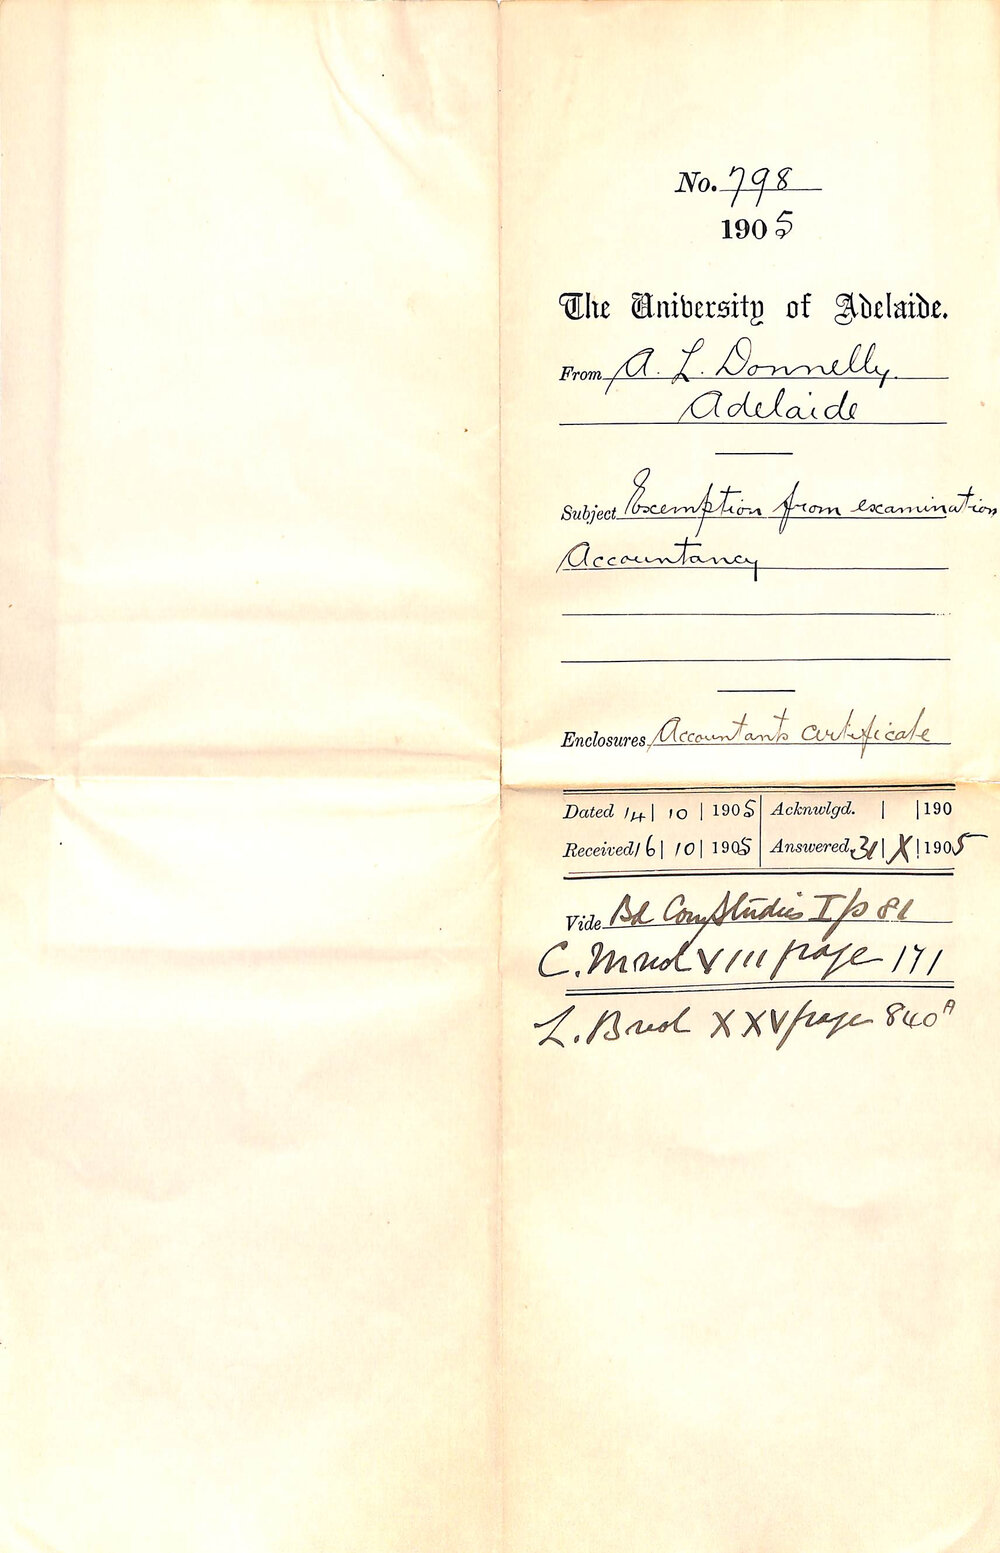 No. 798
1905
The University of Adelaide.
From A. L. Donnelly.
Adelaide
Subject Exemption from examination
Accountancy
Enclosures Accountants certificate
Dated 14 | 10 | 1905 Acknwlgd. | | 190
Received 16 | 10 | 1905 Answered 31 | X | 1905
Vide Bd Com Studies I p 81
C. M VIII page 171
L. B XXV page 840A